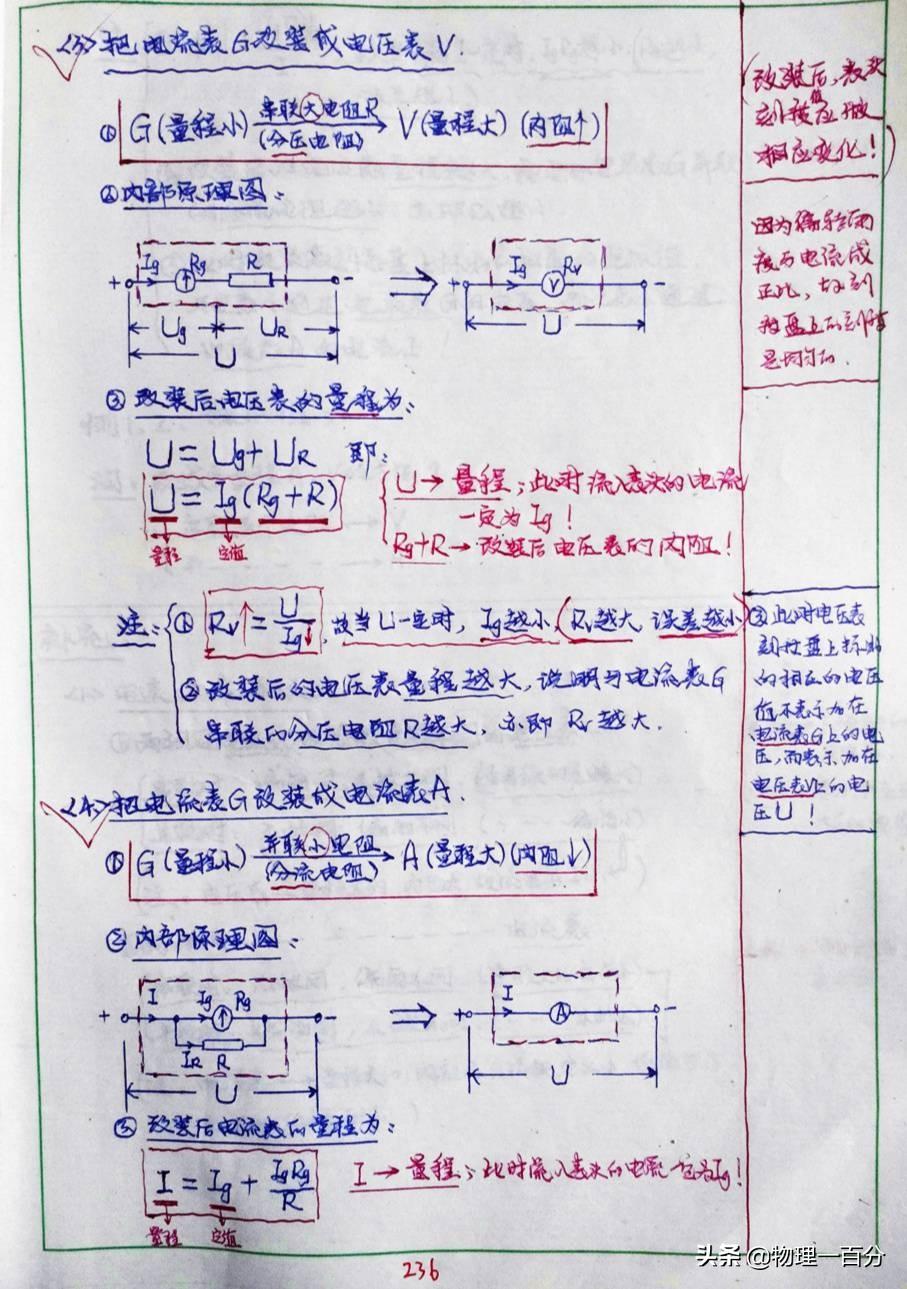 <3>把电流表G改装成电压表V
① G(量程小) 串联大电阻R (分压电阻) V(量程大) (内阻↑)
②内部原理图:
+ Ig Rg R - ⇒ + Ig Rv V -
Ug UR
U U
③ 改装后电压表的量程为:
U=Ug+UR 即:
U=Ig(Rg+R)
量程 定值
U→量程;此时流入表头的电流
一定为Ig!
Rg+R→改装后电压表的内阻!
注: ① Rv↑=U/Ig↓,故当U一定时,Ig越小,Rv越大,误差越小
②改装后的电压表量程越大,说明与电流表G
串联的分压电阻R越大,亦即Rv越大
<4>把电流表G改装成电流表A.
① G(量程小) 并联小电阻 (分流电阻) A(量程大)(内阻↓)
②内部原理图:
+ I Ig Rg - ⇒ + I A -
IR R
U U
③ 改装后电流表的量程为:
I=Ig+IgRg/R
量程 定值
I→量程;此时流入表头的电流一定为Ig!
改装后,表头
刻度值应做
相应变化!
因为偏转角
度与电流成
正比,故刻
度盘上的刻度
是均匀的.
③此时电压表
刻度盘上标出
的相应的电压
值不表示加在
电流表G上的电
压,而表示加在
电压表V上的电
压U!
236
头条 @物理一百分